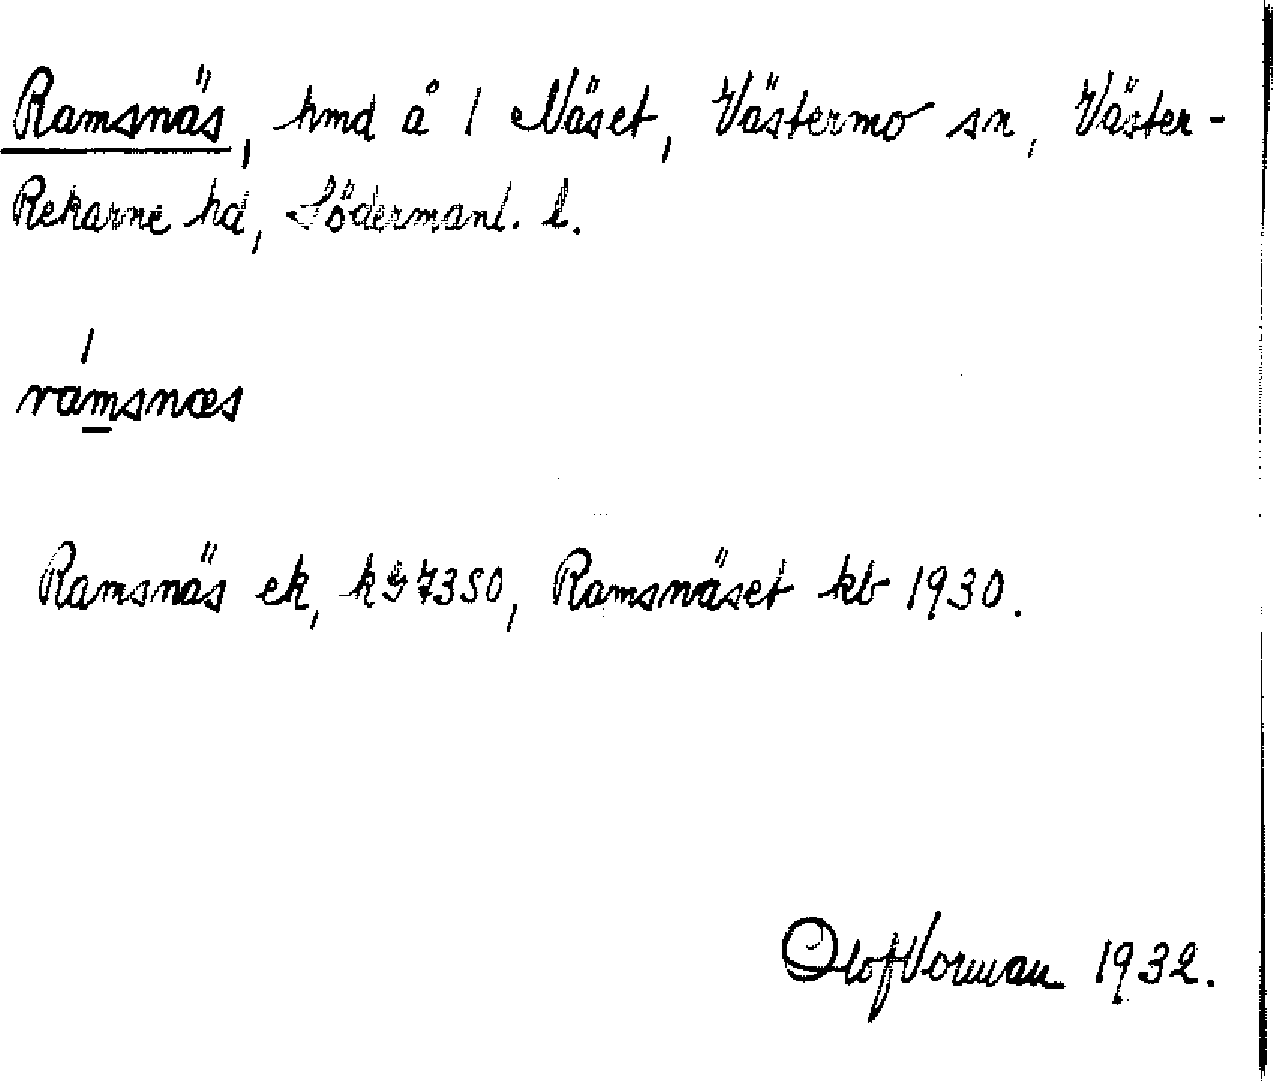 Ramsnäs, hmd å 1 Näset, Västermo sn, Väster-
Rekarne hd, Södermanl. l.
ramsnæs
Ramsnäs ek, kG 7350, Ramsnäset kb 1930.
Olof Vorman 1932.